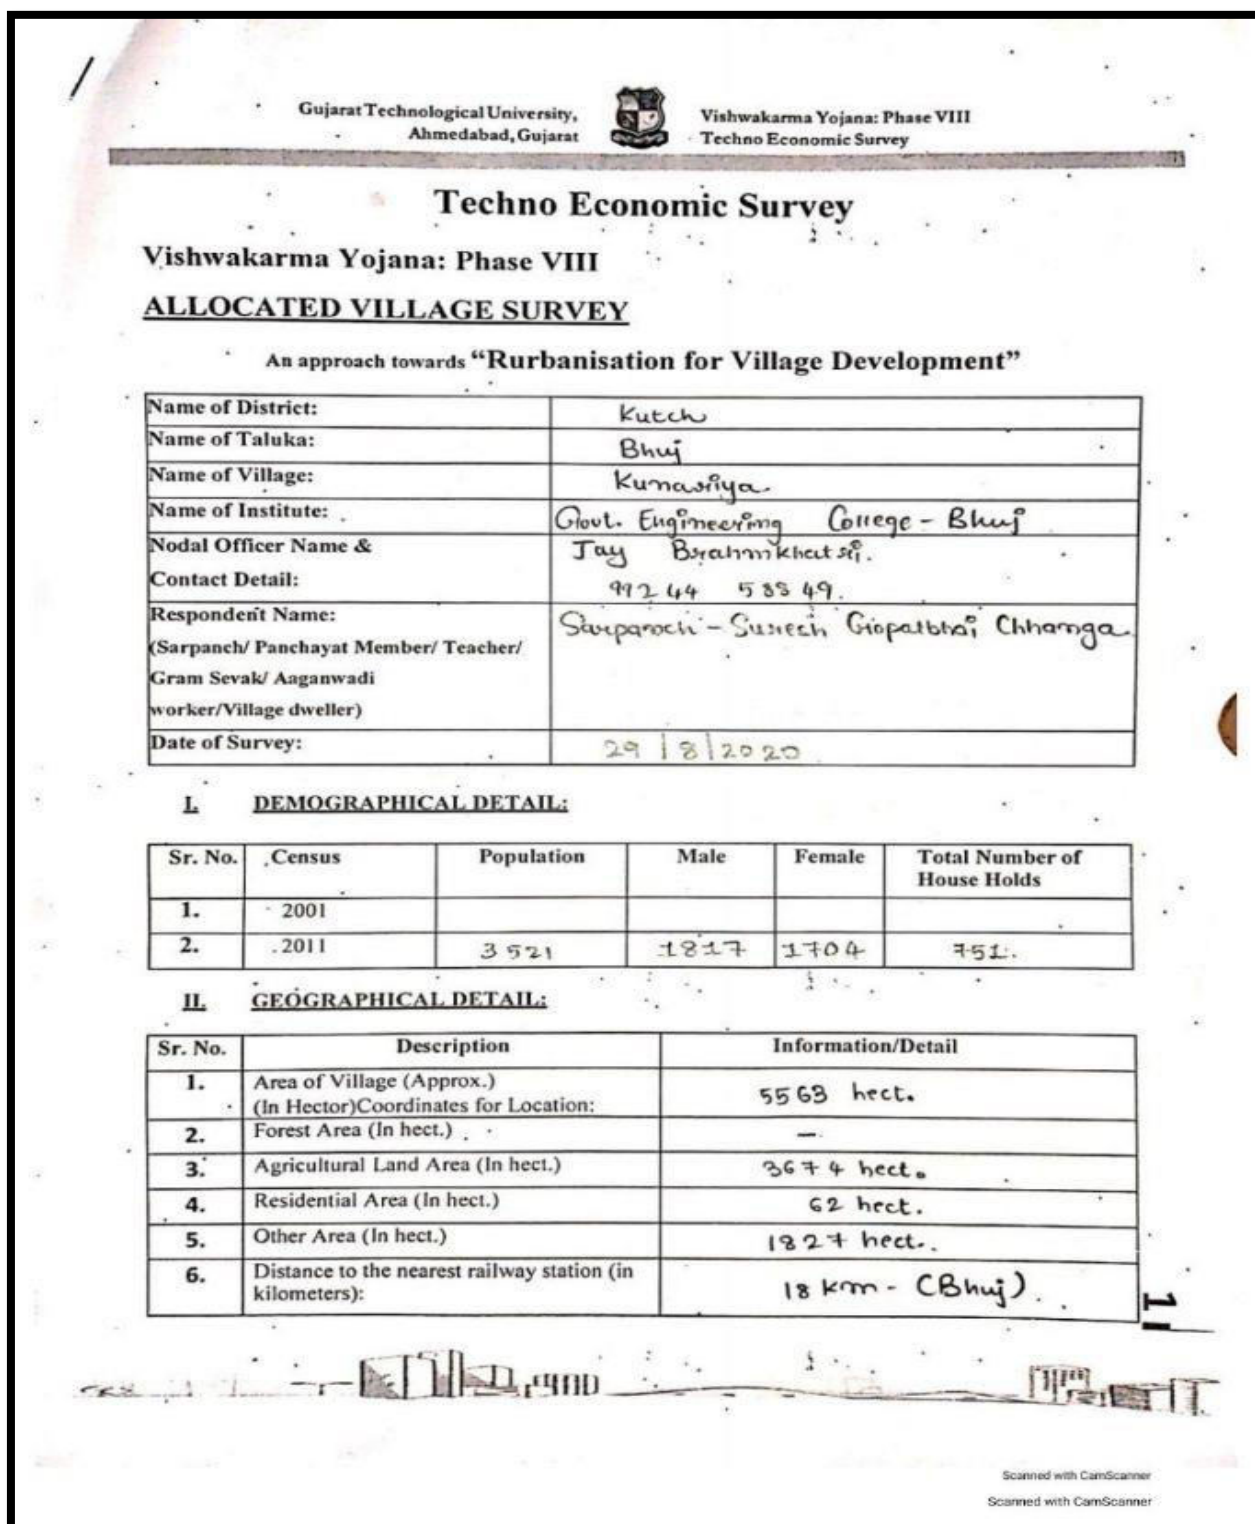 Gujarat Technological University,
Ahmedabad, Gujarat
Vishwakarma Yojana: Phase VIII
Techno Economic Survey
Techno Economic Survey
Vishwakarma Yojana: Phase VIII
ALLOCATED VILLAGE SURVEY
An approach towards "Rurbanisation for Village Development"
Name of District: Kutch
Name of Taluka: Bhuj
Name of Village: Kunariya
Name of Institute: Govt. Engineering College - Bhuj
Nodal Officer Name & Jay Brahmkhatri.
Contact Detail: 99244 58849.
Respondent Name: Sarpanch - Suresh Gopalbhai Chhanga.
(Sarpanch/ Panchayat Member/ Teacher/
Gram Sevak/ Aaganwadi
worker/Village dweller)
Date of Survey: 29/8/2020
I. DEMOGRAPHICAL DETAIL:
Sr. No. Census Population Male Female Total Number of
House Holds
1. 2001
2. 2011 3521 1817 1704 751.
II. GEOGRAPHICAL DETAIL:
Sr. No. Description Information/Detail
1. Area of Village (Approx.) 5563 hect.
(In Hector)Coordinates for Location:
2. Forest Area (In hect.) -
3. Agricultural Land Area (In hect.) 3674 hect.
4. Residential Area (In hect.) 62 hect.
5. Other Area (In hect.) 1827 hect.
6. Distance to the nearest railway station (in 18 km - (Bhuj).
kilometers):
1
Scanned with CamScanner
Scanned with CamScanner